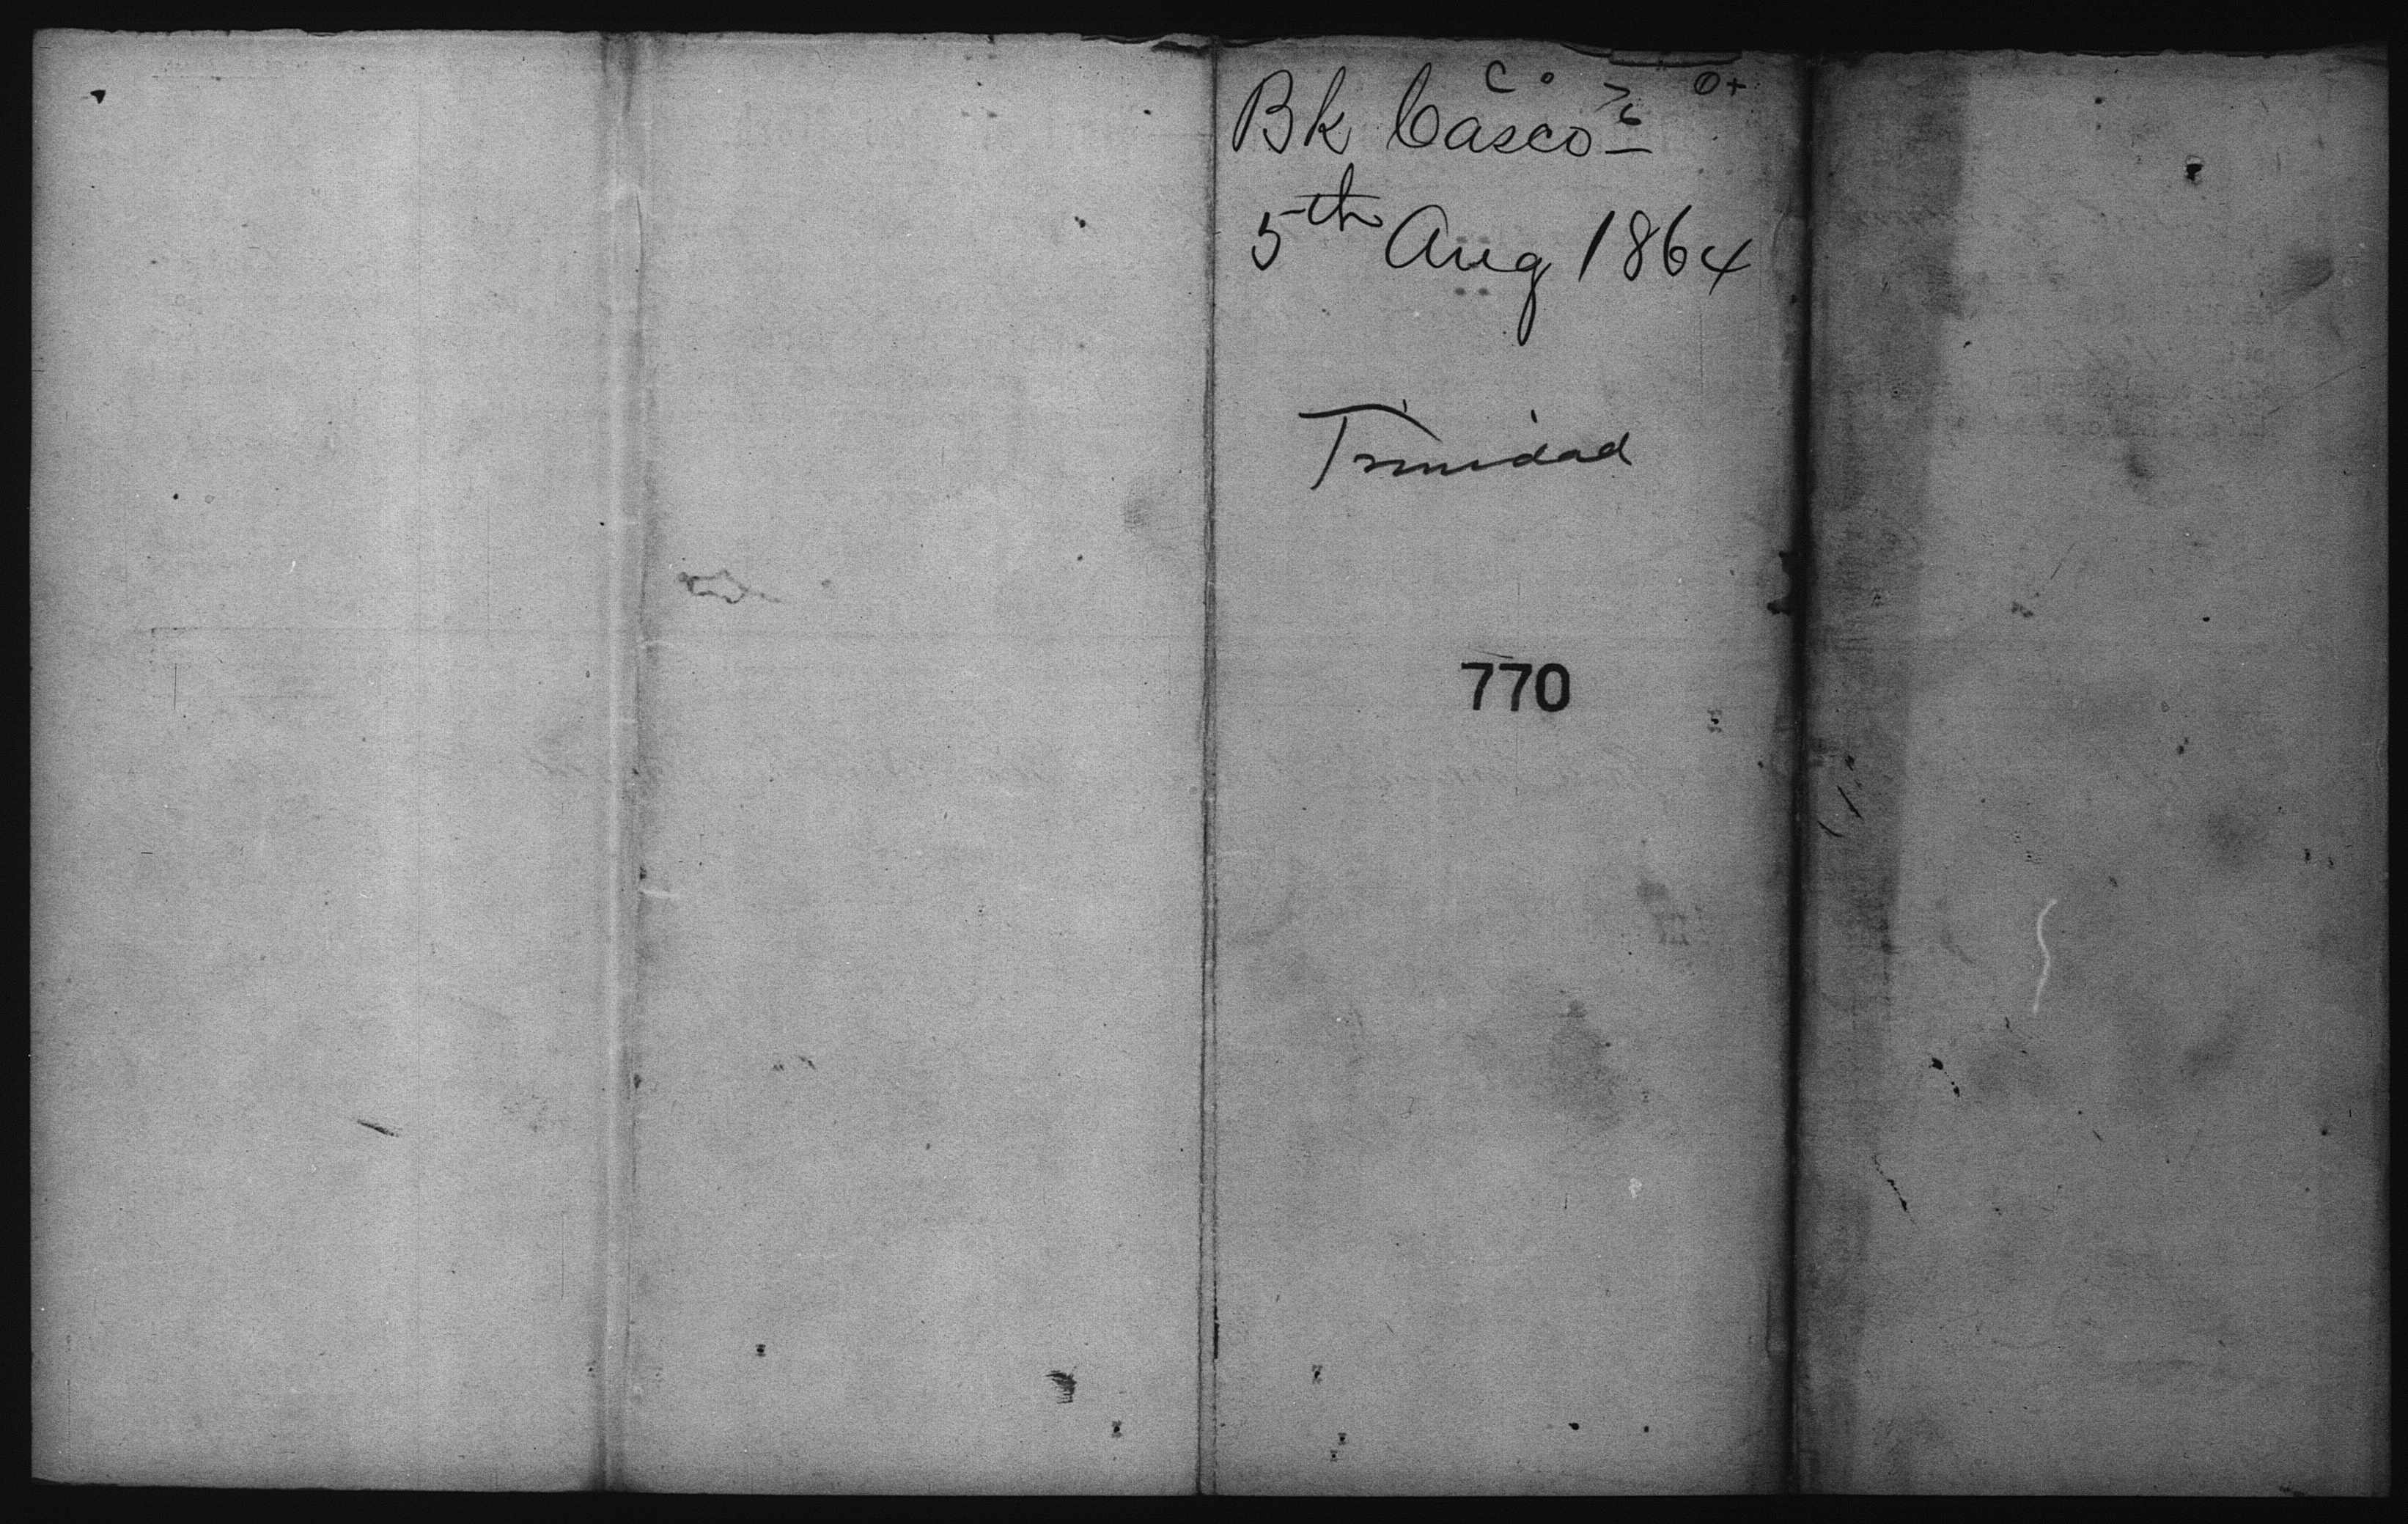 Bk Casco
5th Aug 1864
Trinidad
770